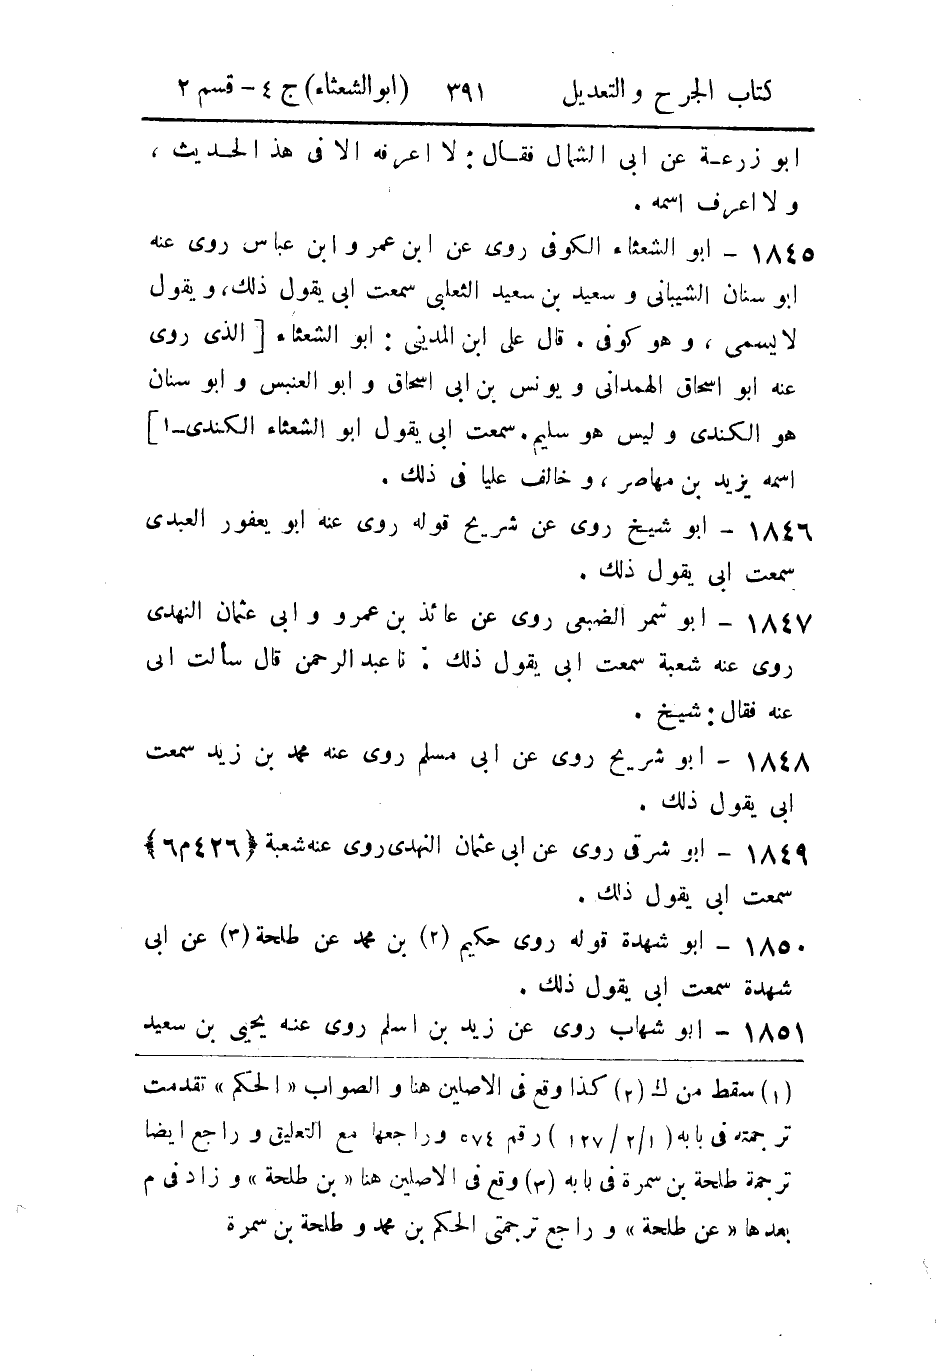 كتاب الجرح والتعديل ٣٩١ (ابو الشعثاء) ج ٤ - قسم ٢
ابو زرعة عن ابى الشمال فقال : لا اعرفه الا فى هذ الحديث ،
ولا اعرف اسمه .
١٨٤٥ - ابو الشعثاء الكوفى روى عن ابن عمر و ابن عباس روى عنه
ابو سنان الشيبانى و سعيد بن سعيد الثعلبى سمعت ابى يقول ذلك، و يقول
لا يسمى ، و هو كوفى . قال على ابن المدينى : ابو الشعثاء [ الذى روى
عنه ابو اسحاق الهمدانى و يونس بن ابى اسحاق و ابو العنبس و ابو سنان
هو الكندى و ليس هو سليم . سمعت ابى يقول ابو الشعثاء الكندى-١]
اسمه يزيد بن مهاصر ، و خالف عليا فى ذلك .
١٨٤٦ - ابو شيخ روى عن شريح قوله روى عنه ابو يعفور العبدى
سمعت ابى يقول ذلك .
١٨٤٧ - ابو شمر الضبعى روى عن عائذ بن عمرو و ابى عثمان النهدى
روى عنه شعبة سمعت ابى يقول ذلك : نا عبد الرحمن قال سألت ابى
عنه فقال : شيخ .
١٨٤٨ - ابو شريح روى عن ابى مسلم روى عنه محمد بن زيد سمعت
ابى يقول ذلك .
١٨٤٩ - ابو شرقى روى عن ابى عثمان النهدى روى عنه شعبة ﴿٤٢٦م٦﴾
سمعت ابى يقول ذلك .
١٨٥٠ - ابو شهدة قوله روى حكيم (٢) بن محمد عن طلحة (٣) عن ابى
شهدة سمعت ابى يقول ذلك .
١٨٥١ - ابو شهاب روى عن زيد بن اسلم روى عنه يحيى بن سعيد
(١) سقط من ك (٢) كذا وقع فى الاصلين هنا و الصواب « الحكم » تقدمت
ترجمته فى بابه (١/ ٢/ ١٢٧) رقم ٥٧٤ و راجعها مع التعليق و راجع ايضا
ترجمة طلحة بن سمرة فى بابه (٣) وقع فى الاصلين هنا « بن طلحة » و زاد فى م
بعدها « عن طلحة » و راجع ترجمتى الحكم بن محمد و طلحة بن سمرة